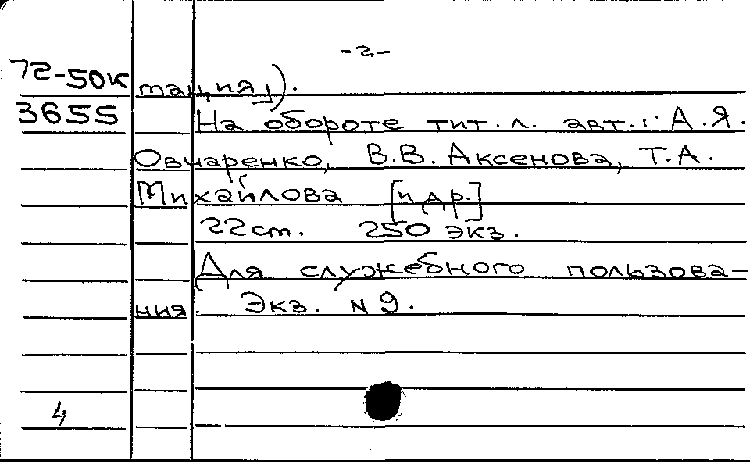 -2-
72-50к тация]).
3655 На обороте тит. л. авт.: А.Я.
Овчаренко, В.В. Аксенова, Т.А.
Михайлова [и др.]
22 cm. 250 экз.
Для служебного пользова-
ния. Экз. N 9.
4